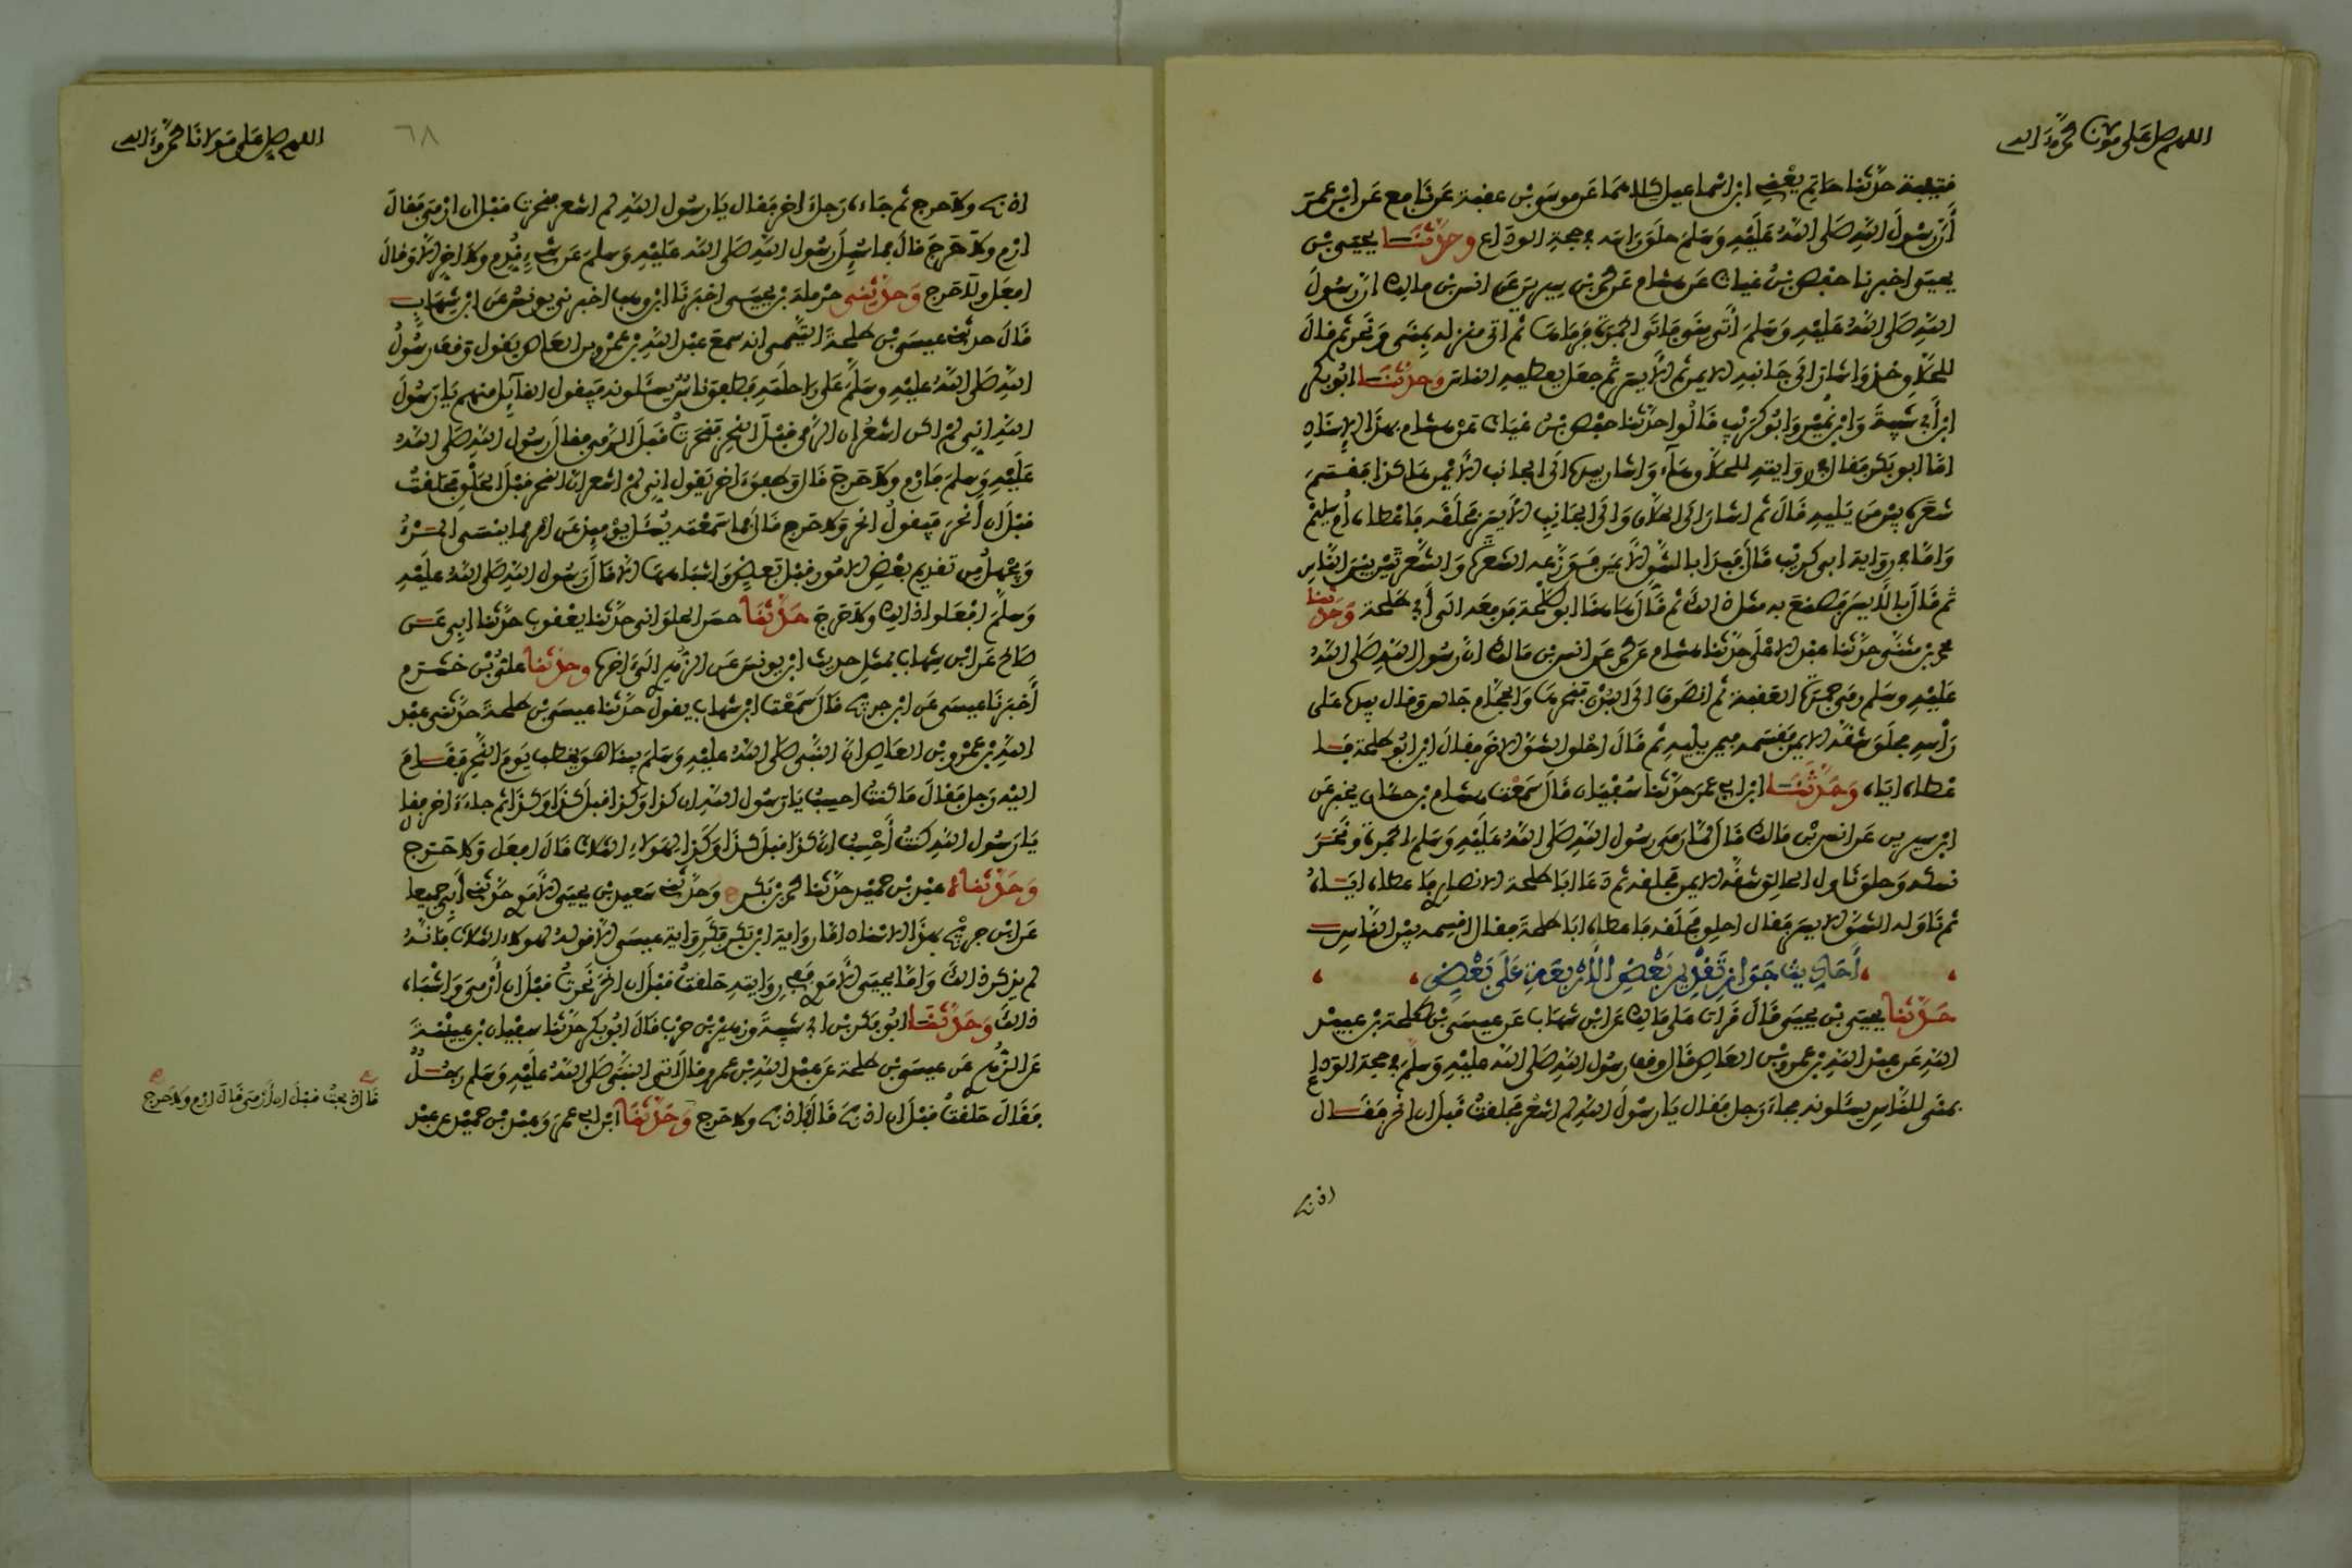 اللهم صل على مولانا محمد وءاله
قتيبة حدثنا حاتم يعني ابن اسماعيل كلاهما عن موسى بن عقبة عن نافع عن ابن عمر
أن رسول الله صلى الله عليه وسلم حلق راسه في حجة الوداع وحدثنا يحيى بن
يحيى اخبرنا حفص بن غياث عن هشام عن محمد بن سيرين عن انس بن مالك ان رسول
الله صلى الله عليه وسلم أتى منى فاتى الجمرة فرماها ثم اتى منزله بمنى ونحر ثم قال
للحلاق خذ واشار الى جانبه الايمن ثم الايسر ثم جعل يعطيه الناس وحدثنا ابو بكر
ابن أبي شيبة وابن نمير وابو كريب قالوا حدثنا حفص بن غياث عن هشام بهذا الاسناد
اما ابو بكر فقال في روايته للحلاق هآء واشار بيده الى الجانب الايمن هاكذا فقسم
شعره بين من يليه قال ثم اشار الى الحلاق والى الجانب الأيسر فحلقه فاعطاه أم سليم
واما في رواية ابي كريب قال فبدا بالشق الايمن فوزعه الشعرة والشعرتين بين الناس
ثم قال بالايسر فصنع به مثل ذالك ثم قال هاهنا ابو طلحة فدفعه الى أبي طلحة وحدثنا
محمد بن مثنى حدثنا عبد الاعلى حدثنا هشام عن محمد عن انس بن مالك ان رسول الله صلى الله
عليه وسلم رمى جمرة العقبة ثم انصرف الى البدن فنحرها والحجام جالس وقال بيده على
رأسه فحلق شقه الايمن فقسمه فيمن يليه ثم قال احلق الشق الاخر فقال اين ابو طلحة فا
عطاه اياه وحدثنا ابن ابي عمر حدثنا سفيان قال سمعت هشام بن حسان يخبر عن
ابن سيرين عن انس بن مالك قال لما رمى رسول الله صلى الله عليه وسلم الجمرة ونحر
نسكه وحلق ناول الحالق شقه الايمن فحلقه ثم دعا ابا طلحة الانصاري فاعطاه اياه
ثم ناوله الشق الايسر فقال احلق فحلقه فاعطاه ابا طلحة فقال اقسمه بين الناس
أحاديث جواز تقديم بعض الأربعة على بعض
حدثنا يحيى بن يحيى قال قرات على مالك عن ابن شهاب عن عيسى بن طلحة بن عبيد
الله عن عبد الله بن عمرو بن العاص قال وقف رسول الله صلى الله عليه وسلم في حجة الوداع
بمنى للناس يسئلونه فجاء رجل فقال يا رسول الله لم اشعر فحلقت قبل ان انحر فقال
اذبح
اللهم صل على مولانا محمد وءاله
٦٨
اذبح ولا حرج ثم جاءه رجل اخر فقال يا رسول الله لم اشعر فنحرت قبل ان ارمي فقال
ارم ولا حرج قال فما سئل رسول الله صلى الله عليه وسلم عن شيء قدم ولا اخر الا قال
افعل ولا حرج وحدثني حرملة بن يحيى اخبرنا ابن وهب اخبرني يونس عن ابن شهاب
قال حدثني عيسى بن طلحة التيمي انه سمع عبد الله بن عمرو بن العاص يقول وقف رسول
الله صلى الله عليه وسلم على راحلته فطفق ناس يسئلونه فيقول القآيل منهم يا رسول
الله اني لم اكن اشعر ان الرمي قبل النحر فنحرت قبل الرمي فقال رسول الله صلى الله
عليه وسلم فارم ولا حرج قال وطفق ءاخر يقول اني لم اشعر ان النحر قبل الحلق فحلقت
قبل ان أنحر فيقول انحر ولا حرج قال فما سمعته يسئل يومئذ عن امر مما ينسى المرء
ويجهل من تقديم بعض الامور قبل بعض واشباهها الا قال رسول الله صلى الله عليه
وسلم افعلوا ذالك ولا حرج حدثنا حسن الحلواني حدثنا يعقوب حدثنا ابي عن
صالح عن ابن شهاب بمثل حديث ابن يونس عن الزهري الى ءاخره وحدثنا علي بن خشرم
أخبرنا عيسى عن ابن جريج قال سمعت ابن شهاب يقول حدثنا عيسى بن طلحة حدثني عبد
الله بن عمرو بن العاص ان النبي صلى الله عليه وسلم بينا هو يخطب يوم النحر فقام
اليه رجل فقال ما كنت احسب يا رسول الله ان كذا وكذا قبل كذا وكذا ثم جاء ءاخر فقال
يا رسول الله كنت أحسب ان كذا قبل كذا وكذا لهؤلاء الثلاث قال افعل ولا حرج
وحدثناه عبد بن حميد حدثنا محمد بن بكر ح وحدثني سعيد بن يحيى الأموي حدثني أبي جميعا
عن ابن جريج بهذا الاسناد اما رواية ابن بكر فكرواية عيسى الا قوله لهؤلاء الثلاث فانه
لم يذكر ذالك واما يحيى الأموي ففي روايته حلقت قبل ان انحر نحرت قبل ان أرمي واشباه
ذالك وحدثنا ابو بكر بن ابي شيبة وزهير بن حرب قال ابو بكر حدثنا سفيان بن عيينة
عن الزهري عن عيسى بن طلحة عن عبد الله بن عمرو قال أتى النبي صلى الله عليه وسلم رجل
فقال حلقت قبل ان اذبح قال فاذبح ولا حرج وحدثنا ابن ابي عمر وعبد بن حميد عن عبد
قال ذبحت قبل ان أرمي قال ارم ولا حرج